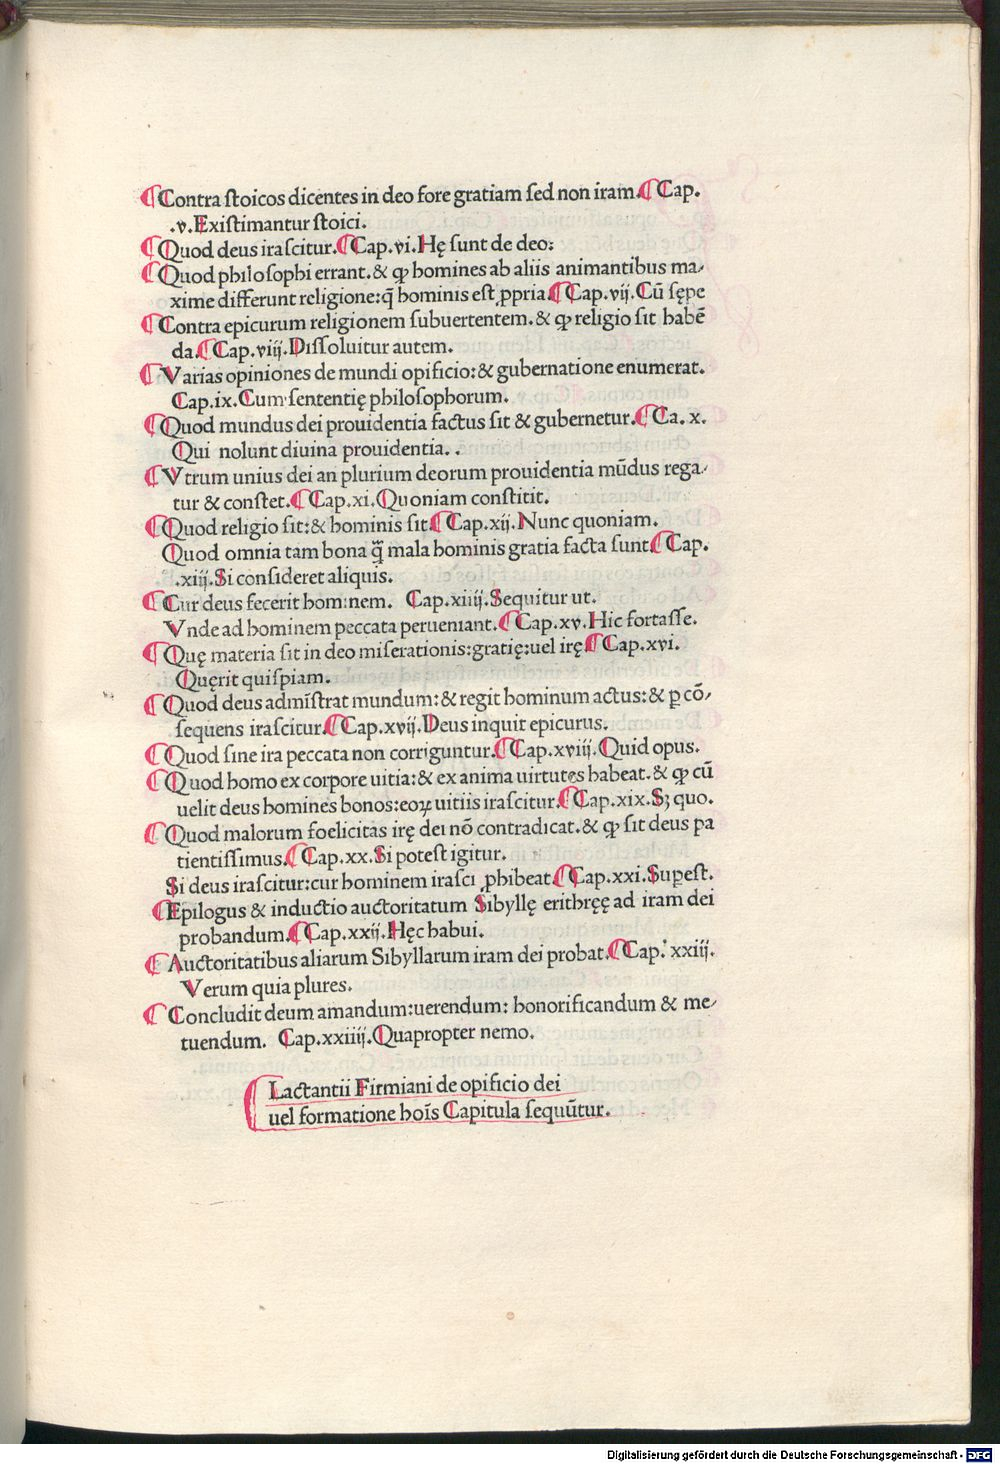 ¶Contra stoicos dicentes in deo fore gratiam sed non iram.¶Cap.
.v.Existimantur stoici.
¶Quod deus irascitur.¶Cap.vi.Hę sunt de deo:
¶Quod philosophi errant.& ꝙ homines ab aliis animantibus ma⸗
xime differunt religione:q̄ hominis est ꝓpria.¶Cap.vij.Cū sępe
¶Contra epicurum religionem subuertentem.& ꝙ religio sit habē
da.¶Cap.viij.Dissoluitur autem.
¶Varias opiniones de mundi opificio:& gubernatione enumerat.
Cap.ix.Cum sententię philosophorum.
¶Quod mundus dei prouidentia factus sit & gubernetur.¶Ca.x.
Qui nolunt diuina prouidentia..
¶Vtrum unius dei an plurium deorum prouidentia mūdus rega⸗
tur & constet.¶Cap.xi.Quoniam constitit.
¶Quod religio sit:& hominis sit.¶Cap.xij.Nunc quoniam.
Quod omnia tam bona q̄ mala hominis gratia facta sunt.¶Cap.
.xiij.Si consideret aliquis.
¶Cur deus fecerit hominem. Cap.xiiij.Sequitur ut.
Vnde ad hominem peccata perueniant.¶Cap.xv.Hic fortasse.
¶Quę materia sit in deo miserationis:gratię:uel irę.¶Cap.xvi.
Quęrit quispiam.
¶Quod deus admīstrat mundum:& regit hominum actus:& ꝑ cō⸗
sequens irascitur.¶Cap.xvij.Deus inquit epicurus.
¶Quod sine ira peccata non corriguntur.¶Cap.xviij.Quid opus.
¶Quod homo ex corpore uitia:& ex anima uirtutes habeat.& ꝙ cū
uelit deus homines bonos:eoꝝ uitiis irascitur.¶Cap.xix.Sꝫ quo.
¶Quod malorum foelicitas irę dei nō contradicat.& ꝙ sit deus pa
tientissimus.¶Cap.xx.Si potest igitur.
Si deus irascitur:cur hominem irasci ꝓhibeat.¶Cap.xxi.Suꝑest.
¶Epilogus & inductio auctoritatum Sibyllę erithręę ad iram dei
probandum.¶Cap.xxij.Hęc habui.
¶Auctoritatibus aliarum Sibyllarum iram dei probat.¶Cap.xxiij.
Verum quia plures.
¶Concludit deum amandum:uerendum:honorificandum & me⸗
tuendum. Cap.xxiiij.Quapropter nemo.
Lactantii Firmiani de opificio dei
uel formatione hoīs Capitula sequūtur.
Digitalisierung gefördert durch die Deutsche Forschungsgemeinschaft - DFG